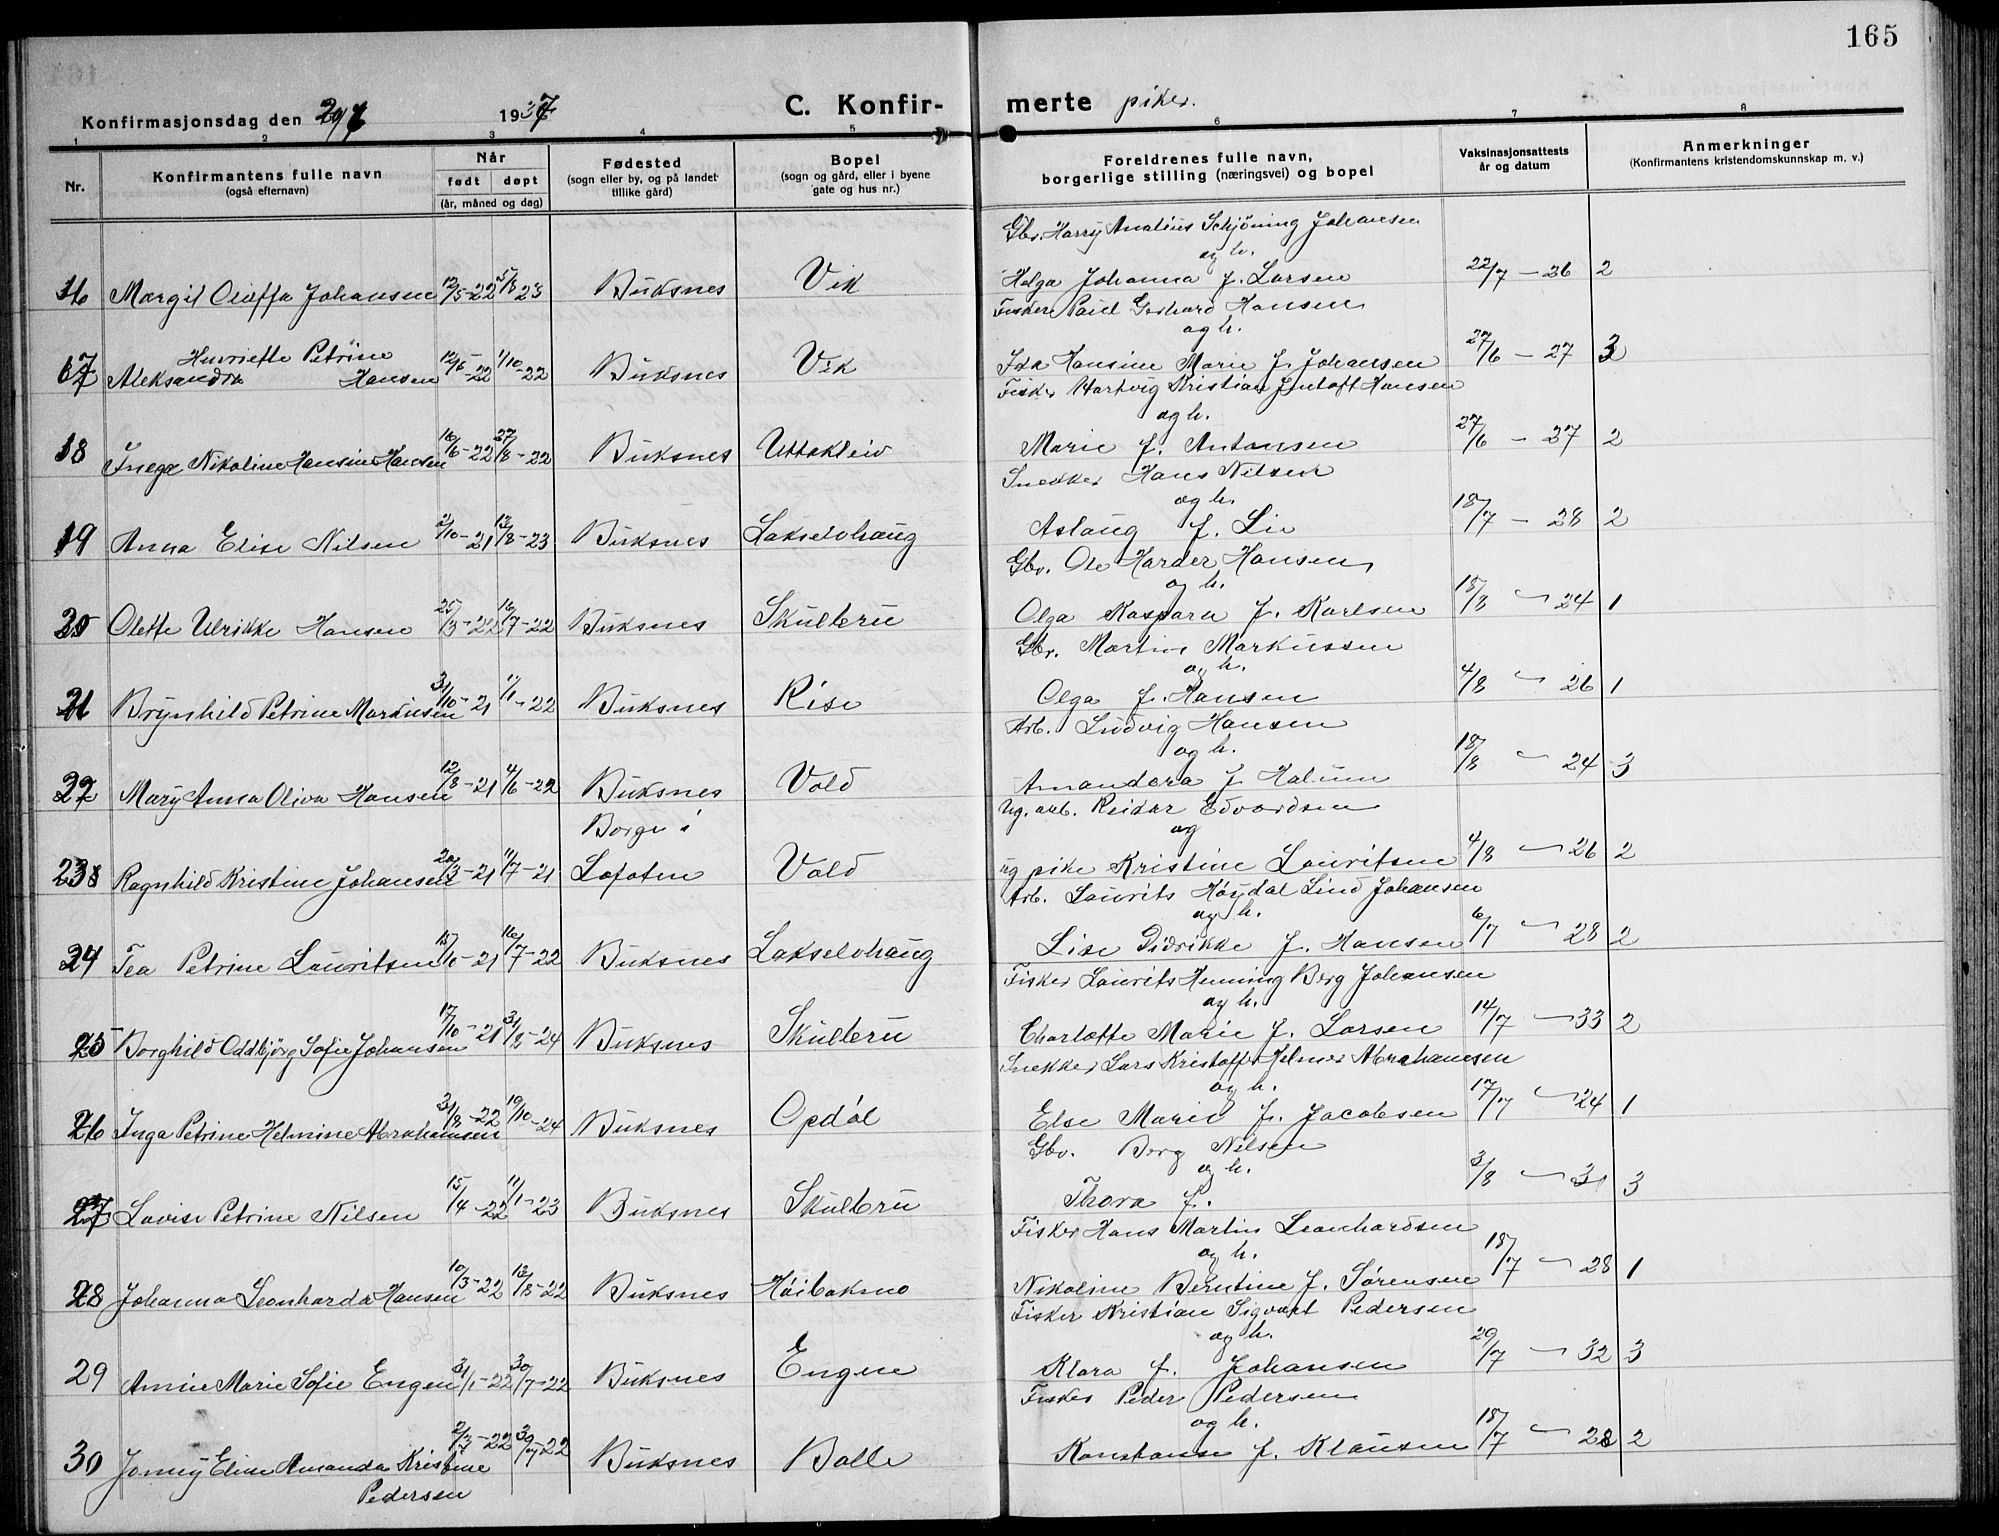 165
Konfirmasjonsdag den 29/6 1937 C. Konfir- merte piker.
1 2 3 4 5 6 7 8
Nr. Konfirmantens fulle navn (også efternavn) Når født døpt (år, måned og dag) Fødested (sogn eller by, og på landet tillike gård) Bopel (sogn og gård, eller i byene gate og hus nr.) Foreldrenes fulle navn, borgerlige stilling (næringsvei) og bopel Vaksinasjonsattests år og datum Anmerkninger (Konfirmantens kristendomskunnskap m. v.)
Gbr. Harry Analius Schjöning Johansen
og h.
16 Margit Olaffa Johansen 12/5-22 5/8 23 Buksnes Vik Helga Johanna f. Larsen 22/7 - 26 2
Fisker Paul Gerhard Hansen
og h.
17 Henriette Petrine
Aleksandra Hansen 12/5-22 1/10-22 Buksnes Vik Ida Hansine Marie f. Johansen 27/6 - 27 3
Fisker Hartvig Kristian Hansen
og h.
18 Inga Nikoline Hansine Hansen 16/6-22 27/8-22 Buksnes Uttakleiv Marie f. Antonsen 27/6 - 27 2
Snekker Hans Nilsen
og h.
19 Anna Elise Nilsen 2/10-21 13/8-23 Buksnes Lakselvhaug Aslaug f. Lie 18/7 - 28 2
Gbr. Ole Harder Hansen
og h.
20 Olette Ulrikke Hansen 25/3-22 16/7-22 Buksnes Skulbru Olga Kaspara f. Karlsen 18/8 - 24 1
Gbr. Martin Markussen
og h.
21 Brynhild Petrine Markusen 31/10-21 1/1-22 Buksnes Rise Olga f. Hansen 4/8 - 26 1
Arb. Ludvig Hansen
og h.
22 Mary Anna Oliva Hansen 12/8-21 4/6-22 Buksnes Vold Amandora f Halum 18/8 - 24 3
Ug. arb. Reidar Edvardsen
og
23 Ragnhild Kristine Johansen 20/3-21 11/7-21 Borge i
Lofoten Vold ug pike Kristine Lauritsen 4/8 - 26 2
Arb. Laurits Høydal Lind Johansen
og h.
24 Tea Petrine Lauritsen 15/10-21 16/7-22 Buksnes Lakselvhaug Lise Didrikke f. Hansen 6/7 - 28 2
Fisker Laurits Henning Berg Johansen
og h.
25 Borghild Oddbjörg Sofie Johansen 17/10-21 31/8-24 Buksnes Skulbru Charlotte Marie f. Larsen 14/7 - 33 2
Snekker Lars Kristoffer Helmer Abrahamsen
og h.
26 Inga Petrine Helmine Abrahamsen 31/8-22 19/10-24 Buksnes Opdøl Else Marie f. Jacobsen 17/7 - 24 1
Gbr. Berg Nilsen
og h.
27 Lovise Petrine Nilsen 15/4-22 11/1-23 Buksnes Skulbru Thora f. 3/8 - 31 3
Fisker Hans Martin Leonhardsen
og h.
28 Johanna Leonharda Hansen 10/3-22 13/8-22 Buksnes Nikoline Berntine f. Sørensen 18/7 - 28 1
Fisker Kristian Sigvart Pedersen
og h.
29 Annie Marie Sofie Engen 31/1-22 30/7-22 Buksnes Engen Klara f. Johansen 29/7 - 32 3
Fisker Peder Pedersen
og h.
30 Jonny Elise Amanda Kristine
Pedersen 2/3-22 30/7-22 Buksnes Balle Konstanse f. Klausen 18/7 - 28 2